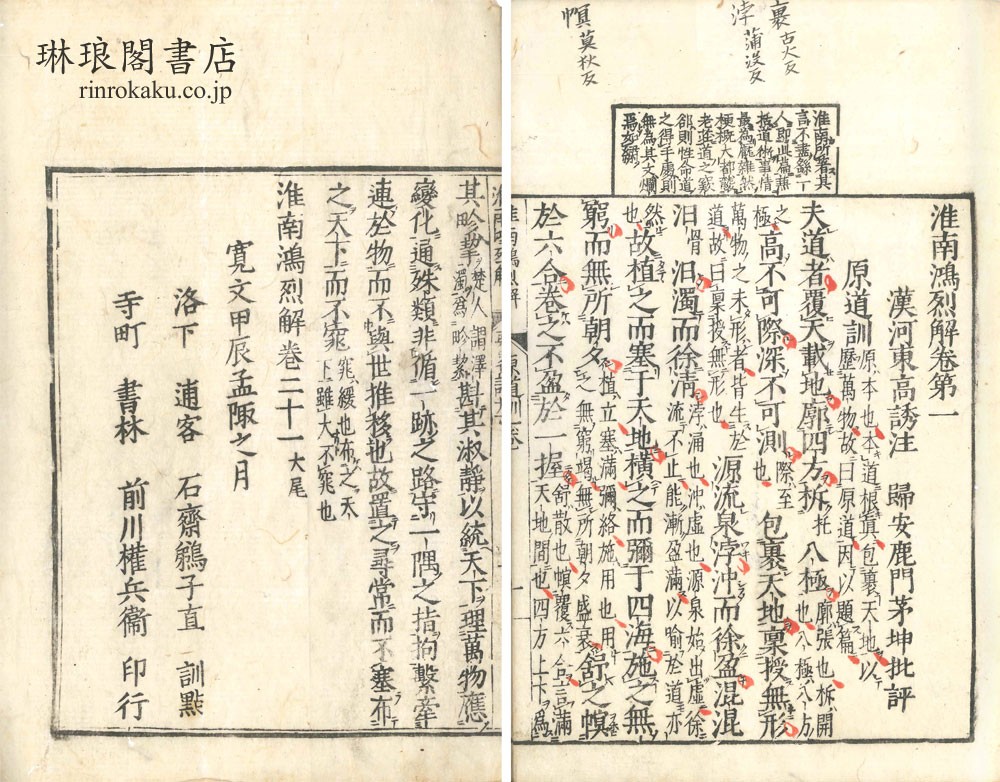 琳琅閣書店
rinrokaku.co.jp
裹 古火反
浡 蒲没反
幎 莫秋反
淮南所著其
言不盡繇丁
人即此篇無
最為龐雜然
梗概大都蔽
老莊道之
郤則性命道
之得手處則
無為其文爛
淮南鴻烈解卷第一
漢河東高誘注 歸安鹿門茅坤批評
原道訓 原本也本道根眞包裹天地以歷萬物故曰原道因以題篇
夫道者覆天載地廓四方柝八極 廓張也柝開也八極八方
之極高不可際深不可測 際至也 包裹天地稟授無形
萬物之未形者皆生於道故曰稟授無形也 源流泉浡沖而徐盈混混
汩汩濁而徐淸 浡涌也沖虛也源泉始出虛徐流不止能漸盈滿以喻於道亦然也
故植之而塞于天地橫之而彌于四海施之無
窮而無所朝夕 植立塞滿彌絡施用也用之無窮竭無所朝夕盛衰 舒之幎
於六合卷之不盈於一握 舒散也幎覆六合言滿天地間也四方上下為
其畛挈 楚人謂澤濁為畛挈 斟其淑靜以統天下理萬物應
變化通殊類非循一跡之路守一隅之指拘繫牽
連於物而不與世推移也故置之尋常而不塞布
之天下而不窕 窕緩也布之天下雖大不窕也
淮南鴻烈解卷二十一 大尾
寛文甲辰孟陬之月
洛下 逋客 石齋鵜子直 訓點
寺町 書林 前川權兵衞 印行